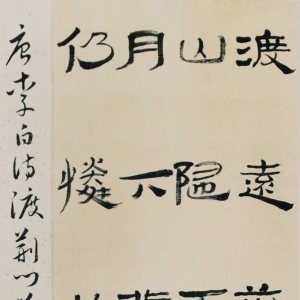 渡遠
山隨
月下
仍憐
唐李白詩渡荊門